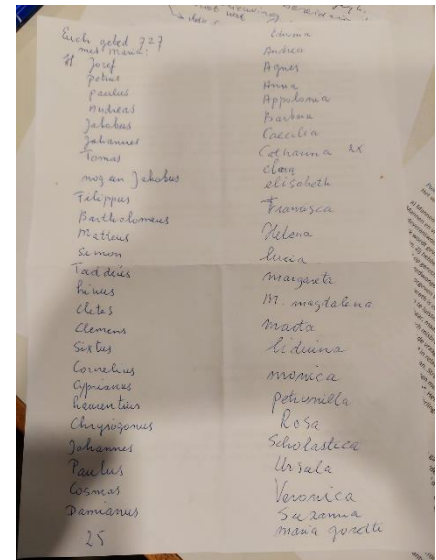 Euch gebed 727
met maria:
H Jozef
petrus
paulus
Andreas
Jakobus
Johannes
Tomas
nog een Jakobus
Filippus
Bartholomeus
Matteus
Simon
Taddeüs
Linus
Cletus
Clemens
Sixtus
Cornelius
Cyprianus
Laurentius
Chrysogonus
Johannes
Paulus
Cosmas
Damianus
25
Andrea
Agnes
Anna
Appolonia
Barbara
Caecilia
Catharina 2x
Clara
elisabeth
Francisca
Helena
Lucia
margareta
M. magdalena
Marta
liduina
monica
petronilla
Rosa
Scholastica
Ursula
Veronica
Suzanna
maria goretti